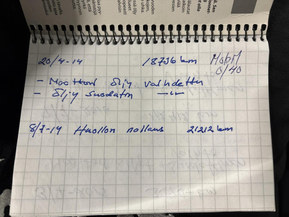 20/4-14 18736 km Mobil 0/40
- Moottori öljy vaihdettu
- öljy suodatin —"—
8/7-14 Huollon nollaus 21212 km